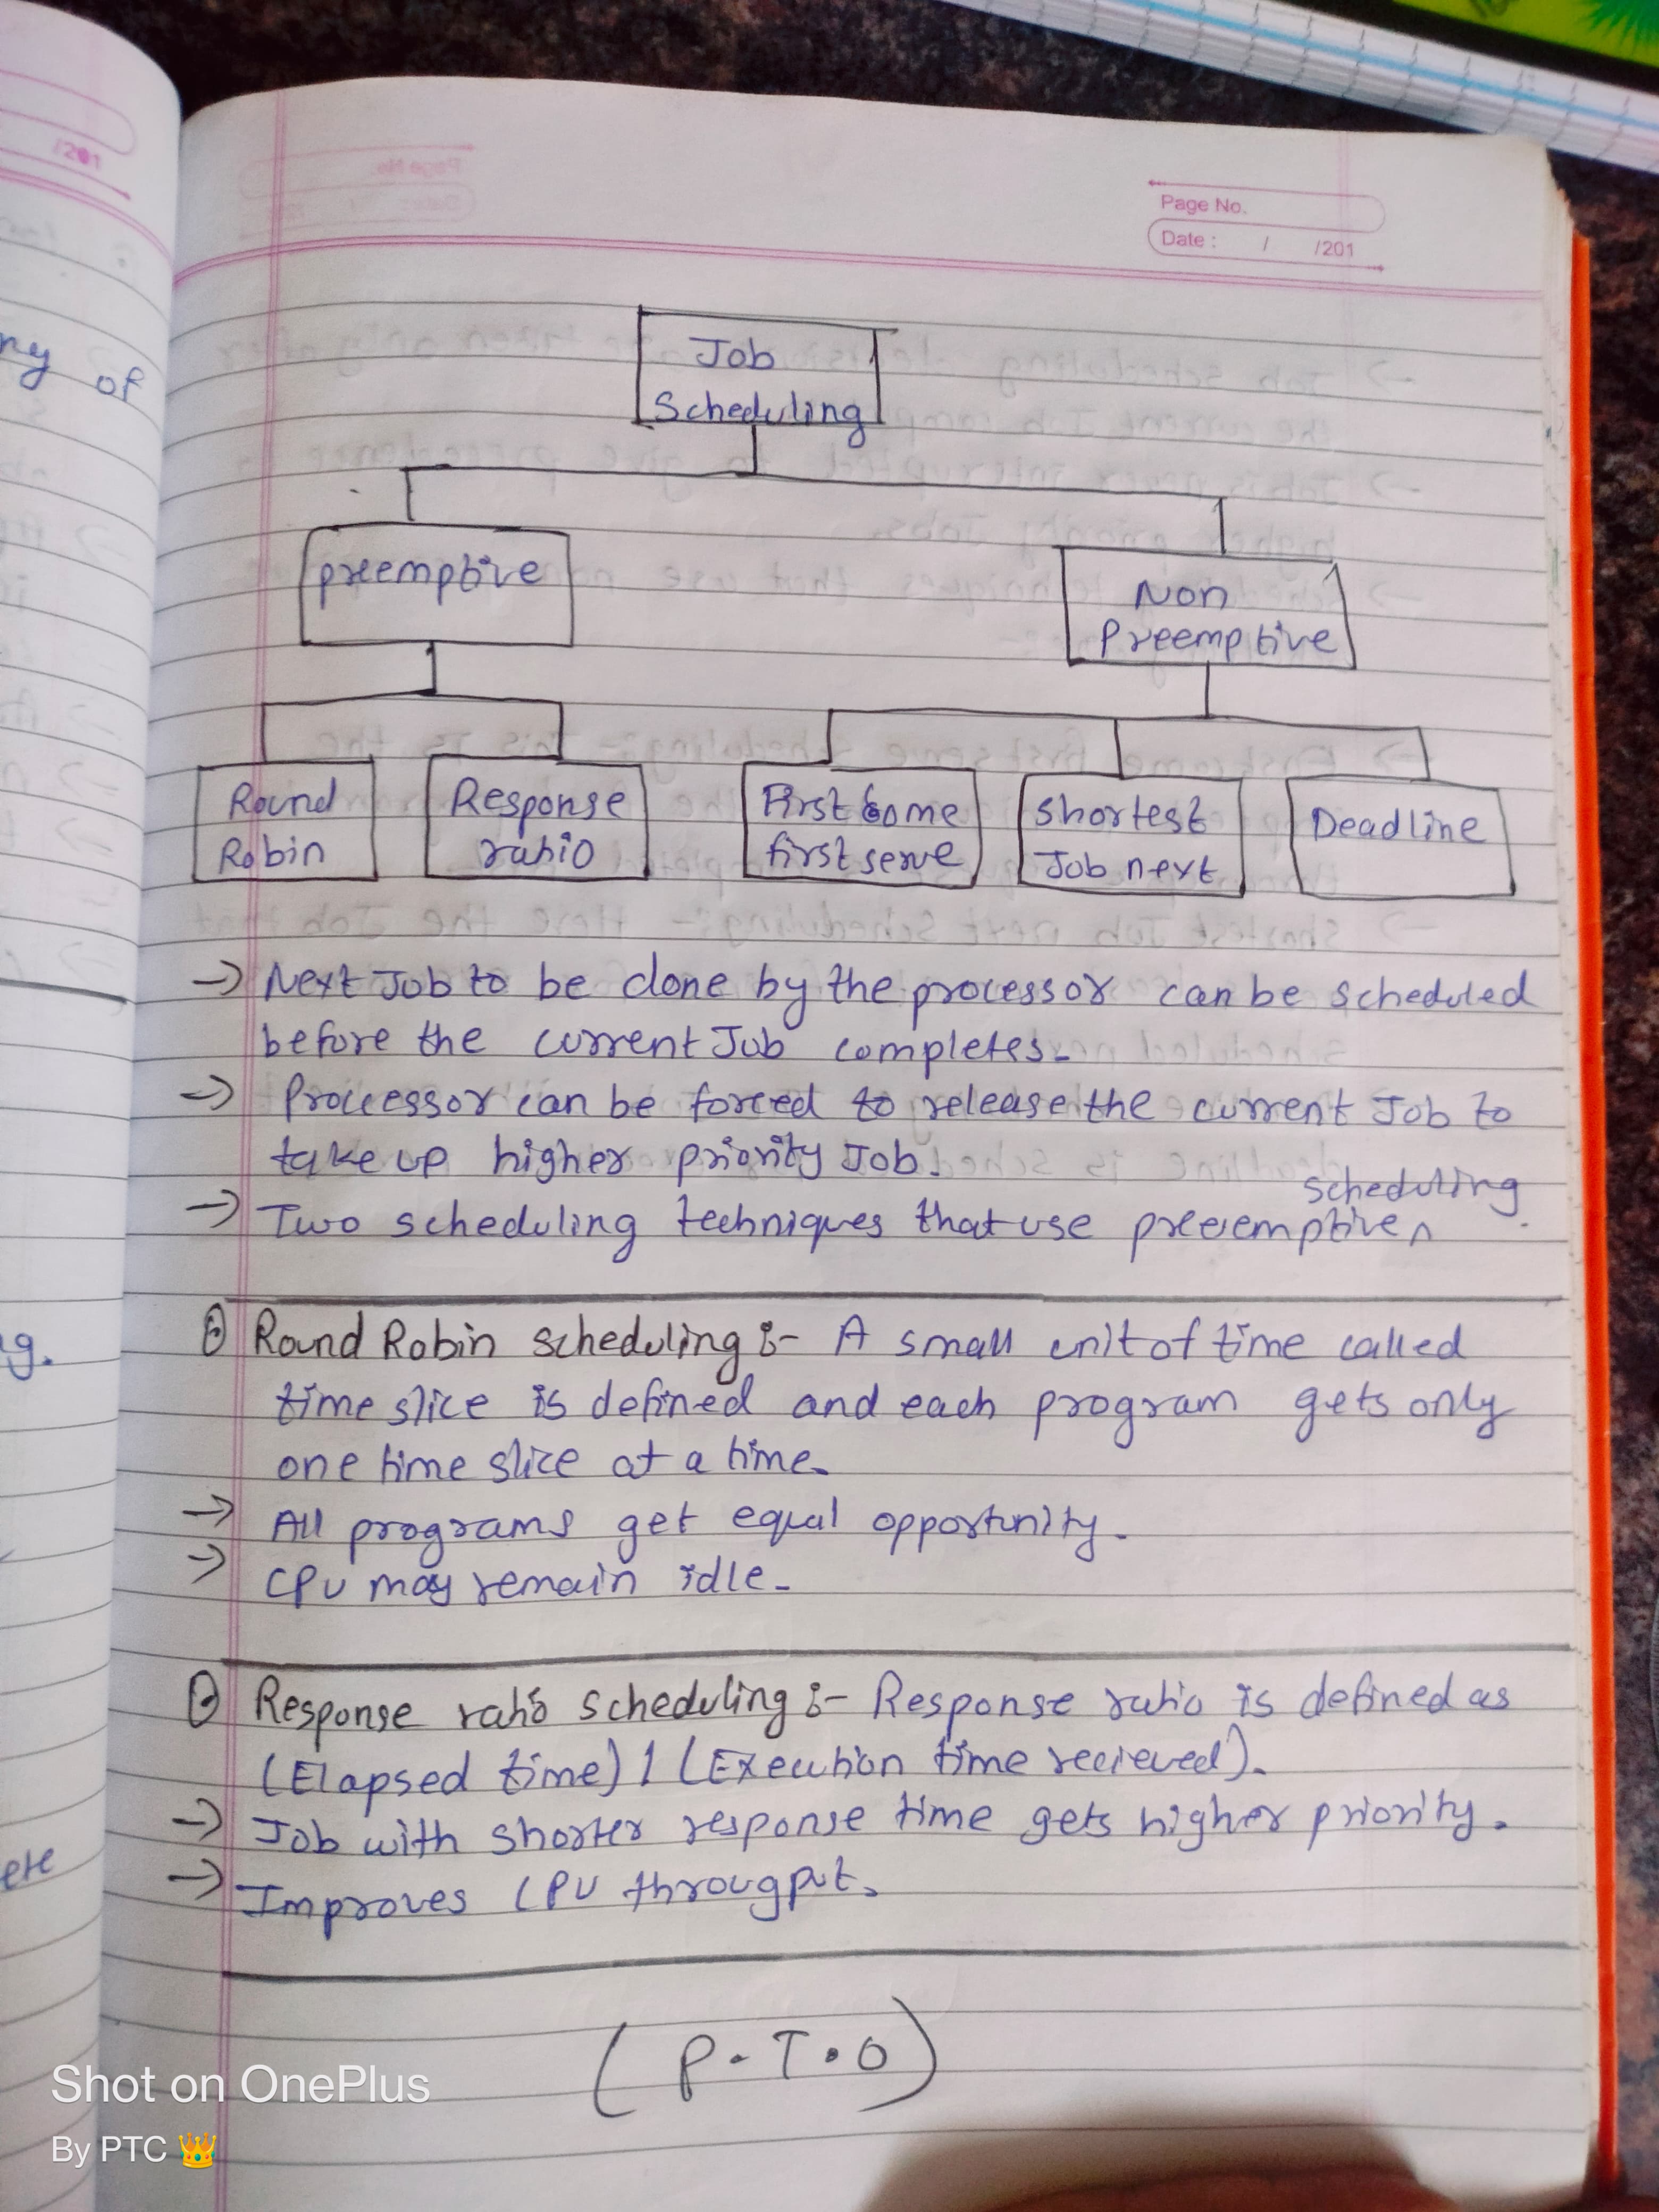 /201
Page No.
Date : / /201
ny of
Job
Scheduling
preemptive
Non
Preemptive
Round
Robin
Response
ratio
First Come
first serve
Shortest
Job next
Deadline
→ Next Job to be done by the processor can be scheduled
before the current Job completes.
→ Processor can be forced to release the current Job to
take up higher priority Job.
scheduling
→ Two scheduling techniques that use preeemptive^.
Round Robin scheduling :- A small unit of time called
time slice is defined and each program gets only
one time slice at a time.
→ All programs get equal opportunity.
→ CPU may remain idle.
Response ratio scheduling :- Response ratio is defined as
(Elapsed time) / (Execution time recieved).
→ Job with shorter response time gets higher priority.
→ Improves CPU througput.
(P.T.O)
g.
ete
Shot on OnePlus
By PTC 👑